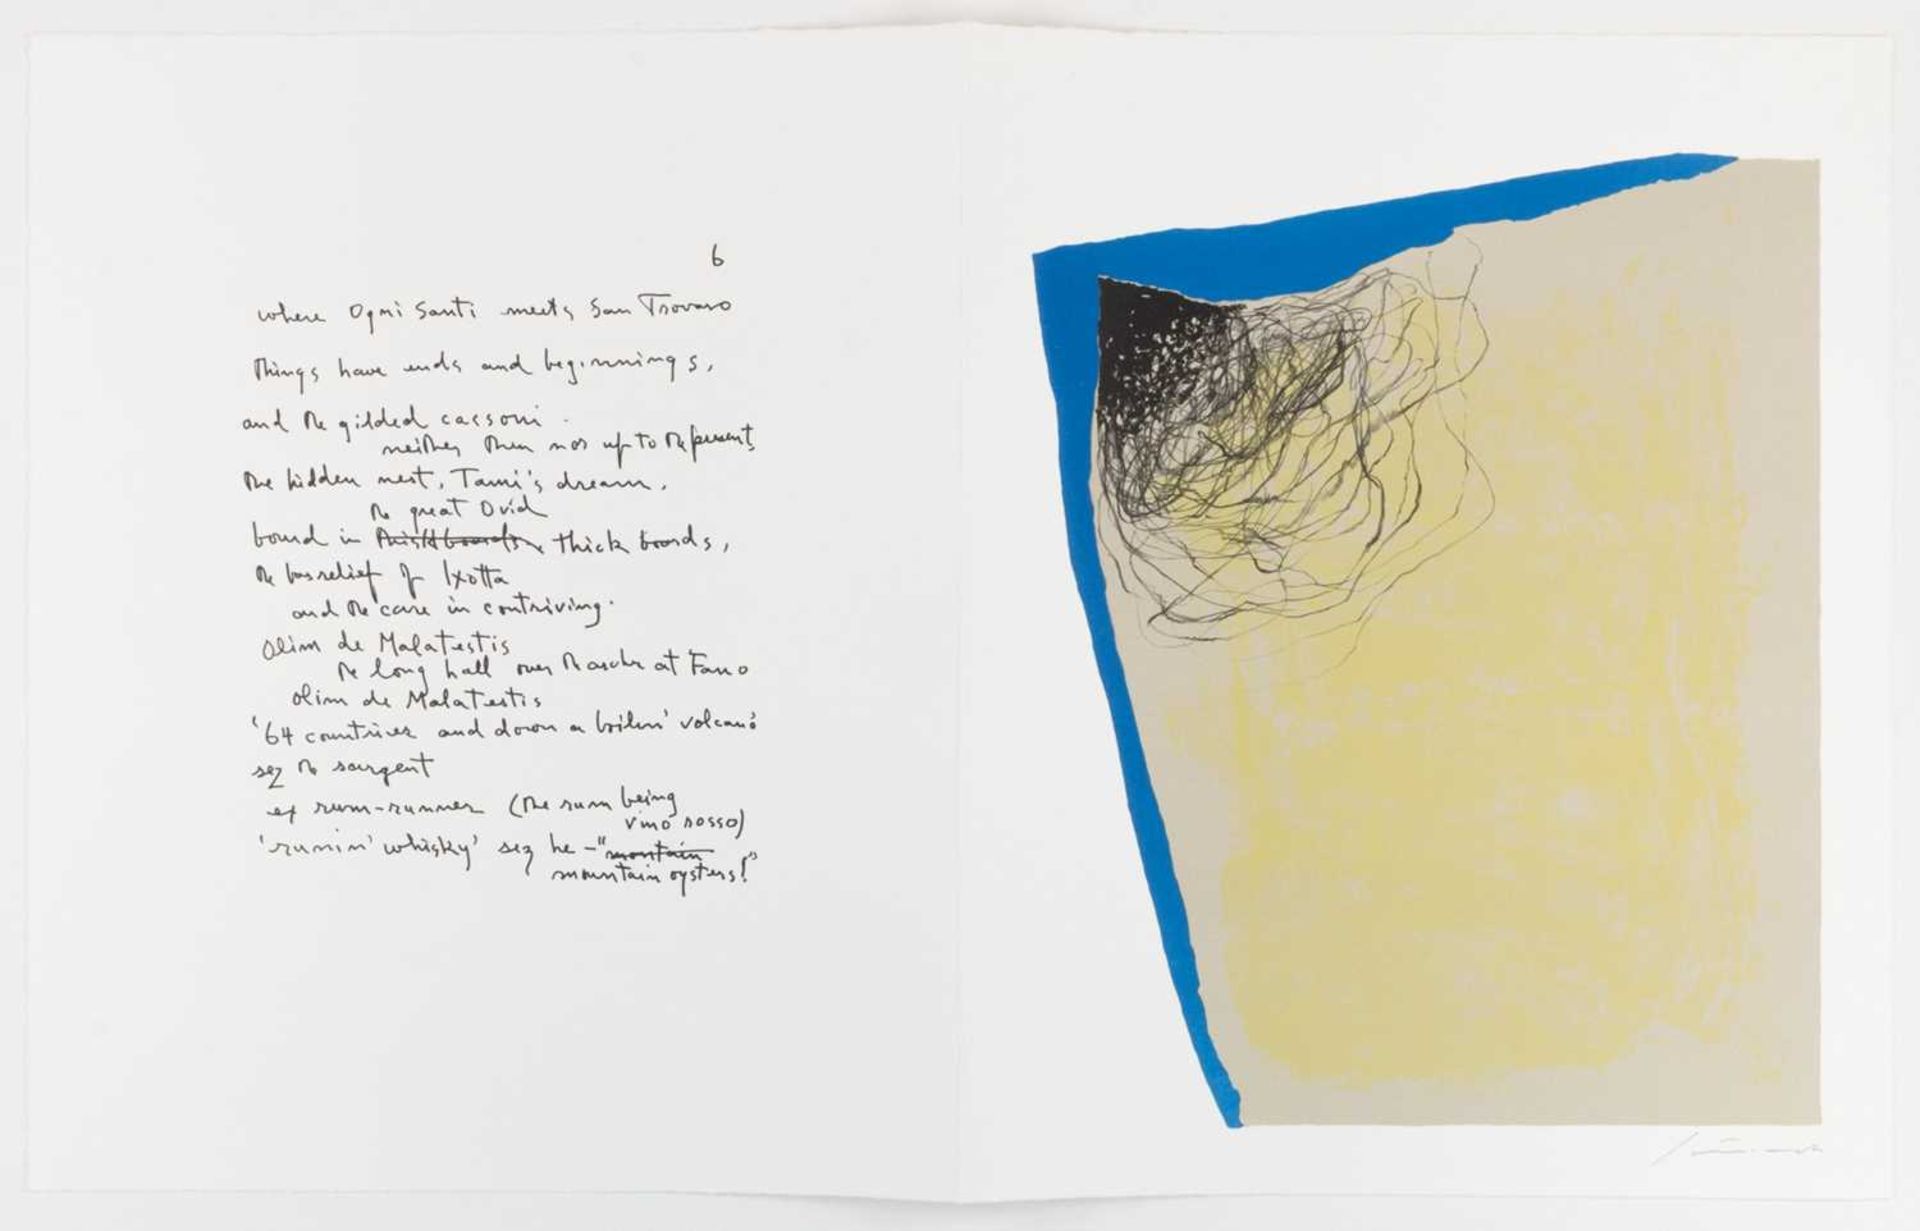 6
where Ogni Santi meets San Trovaso
things have ends and beginnings,
and the gilded cassoni
neither then nor up to the present,
the hidden nest, Tami's dream,
the great Ovid
bound in thick boards, thick boards,
the bas relief of Ixotta
and the care in contriving.
Olim de Malatestis
the long hall over the arch at Fano
olim de Malatestis
'64 countries and down a boilin' volcano'
sez the sargent
ex rum-runner (the rum being
vino rosso)
'runnin' whisky' sez he - "mountain
mountain oysters!"